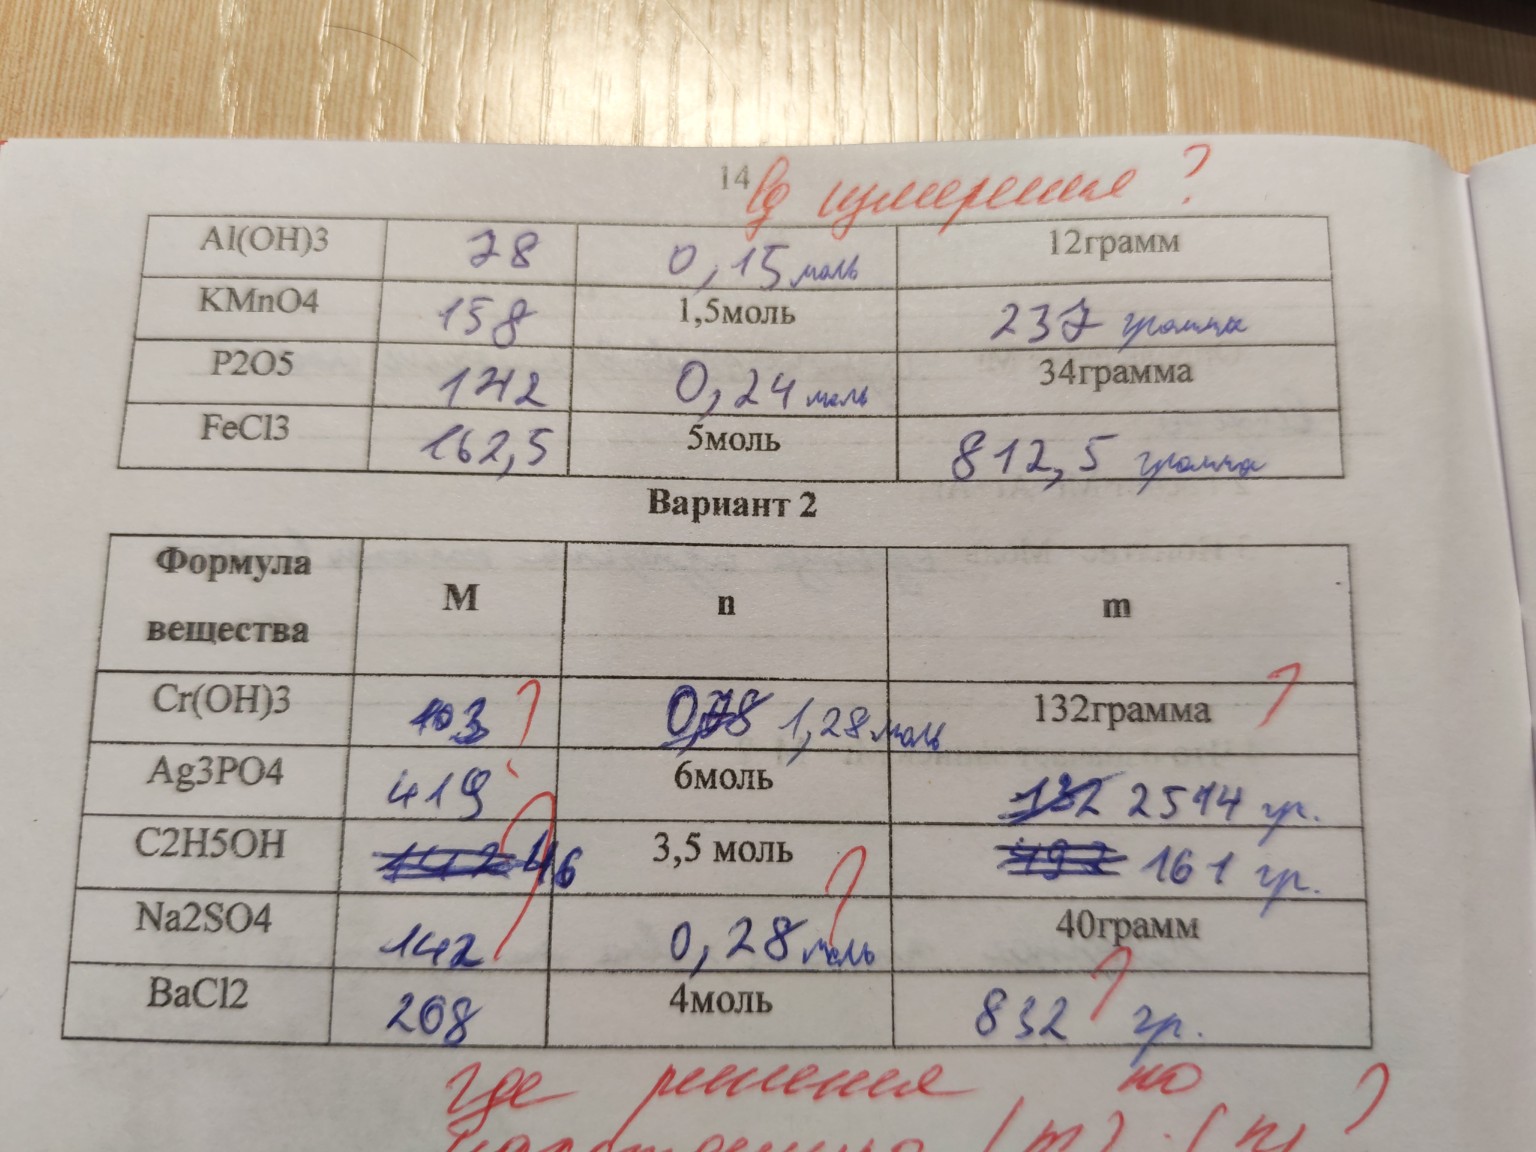 14 ед измерения ?
Al(OH)3 78 0,15 моль 12грамм
KMnO4 158 1,5моль 237 грамма
P2O5 142 0,24 моль 34грамма
FeCl3 162,5 5моль 812,5 грамма
Вариант 2
Формула вещества M n m
Cr(OH)3 103 ? 1,28 моль 132грамма ?
Ag3PO4 419 6моль 2514 гр.
C2H5OH 46 ? 3,5 моль 161 гр.
Na2SO4 142 0,28 моль ? 40грамм
BaCl2 208 4моль 832 гр. ?
где решения по ?
(m) (n)